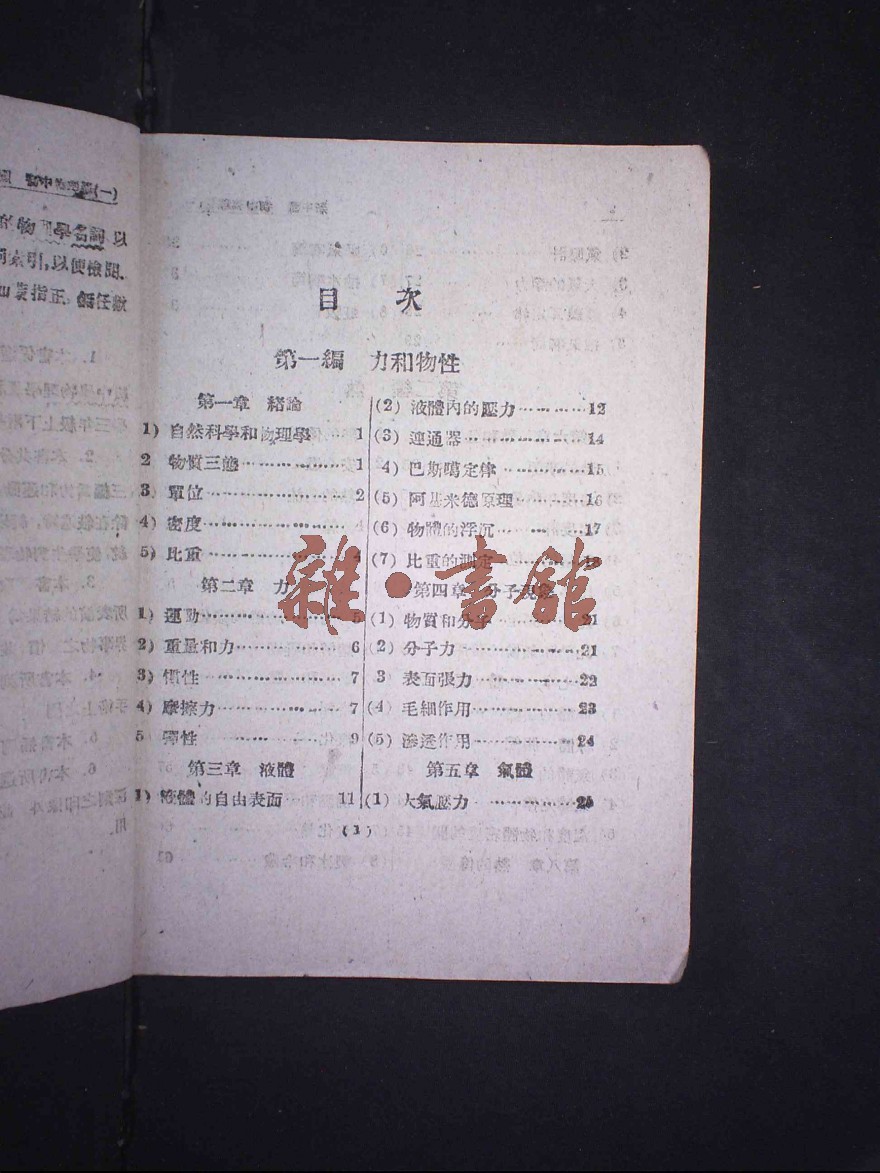 物理學名詞,以
索引,以便檢閱.
指正,
目 次
第一編 力和物性
第一章 緒論
1) 自然科學和物理學 1
2 物質三態 1
3) 單位 2
4) 密度
5) 比重 4
第二章 力
1) 運動 5
2) 重量和力 6
3) 慣性 7
4) 摩擦力 7
5 彈性 9
第三章 液體
1) 液體的自由表面 11
(2) 液體內的壓力 12
(3) 連通器 14
4) 巴斯噶定律 15
(5) 阿基米德原理 16
(6) 物體的浮沉 17
(7) 比重的測定
第四章 分子
(1) 物質和分子 21
(2) 分子力 21
3 表面張力 22
(4) 毛細作用 23
(5) 滲透作用 24
第五章 氣體
(1) 大氣壓力 25
(1)
雜·書館